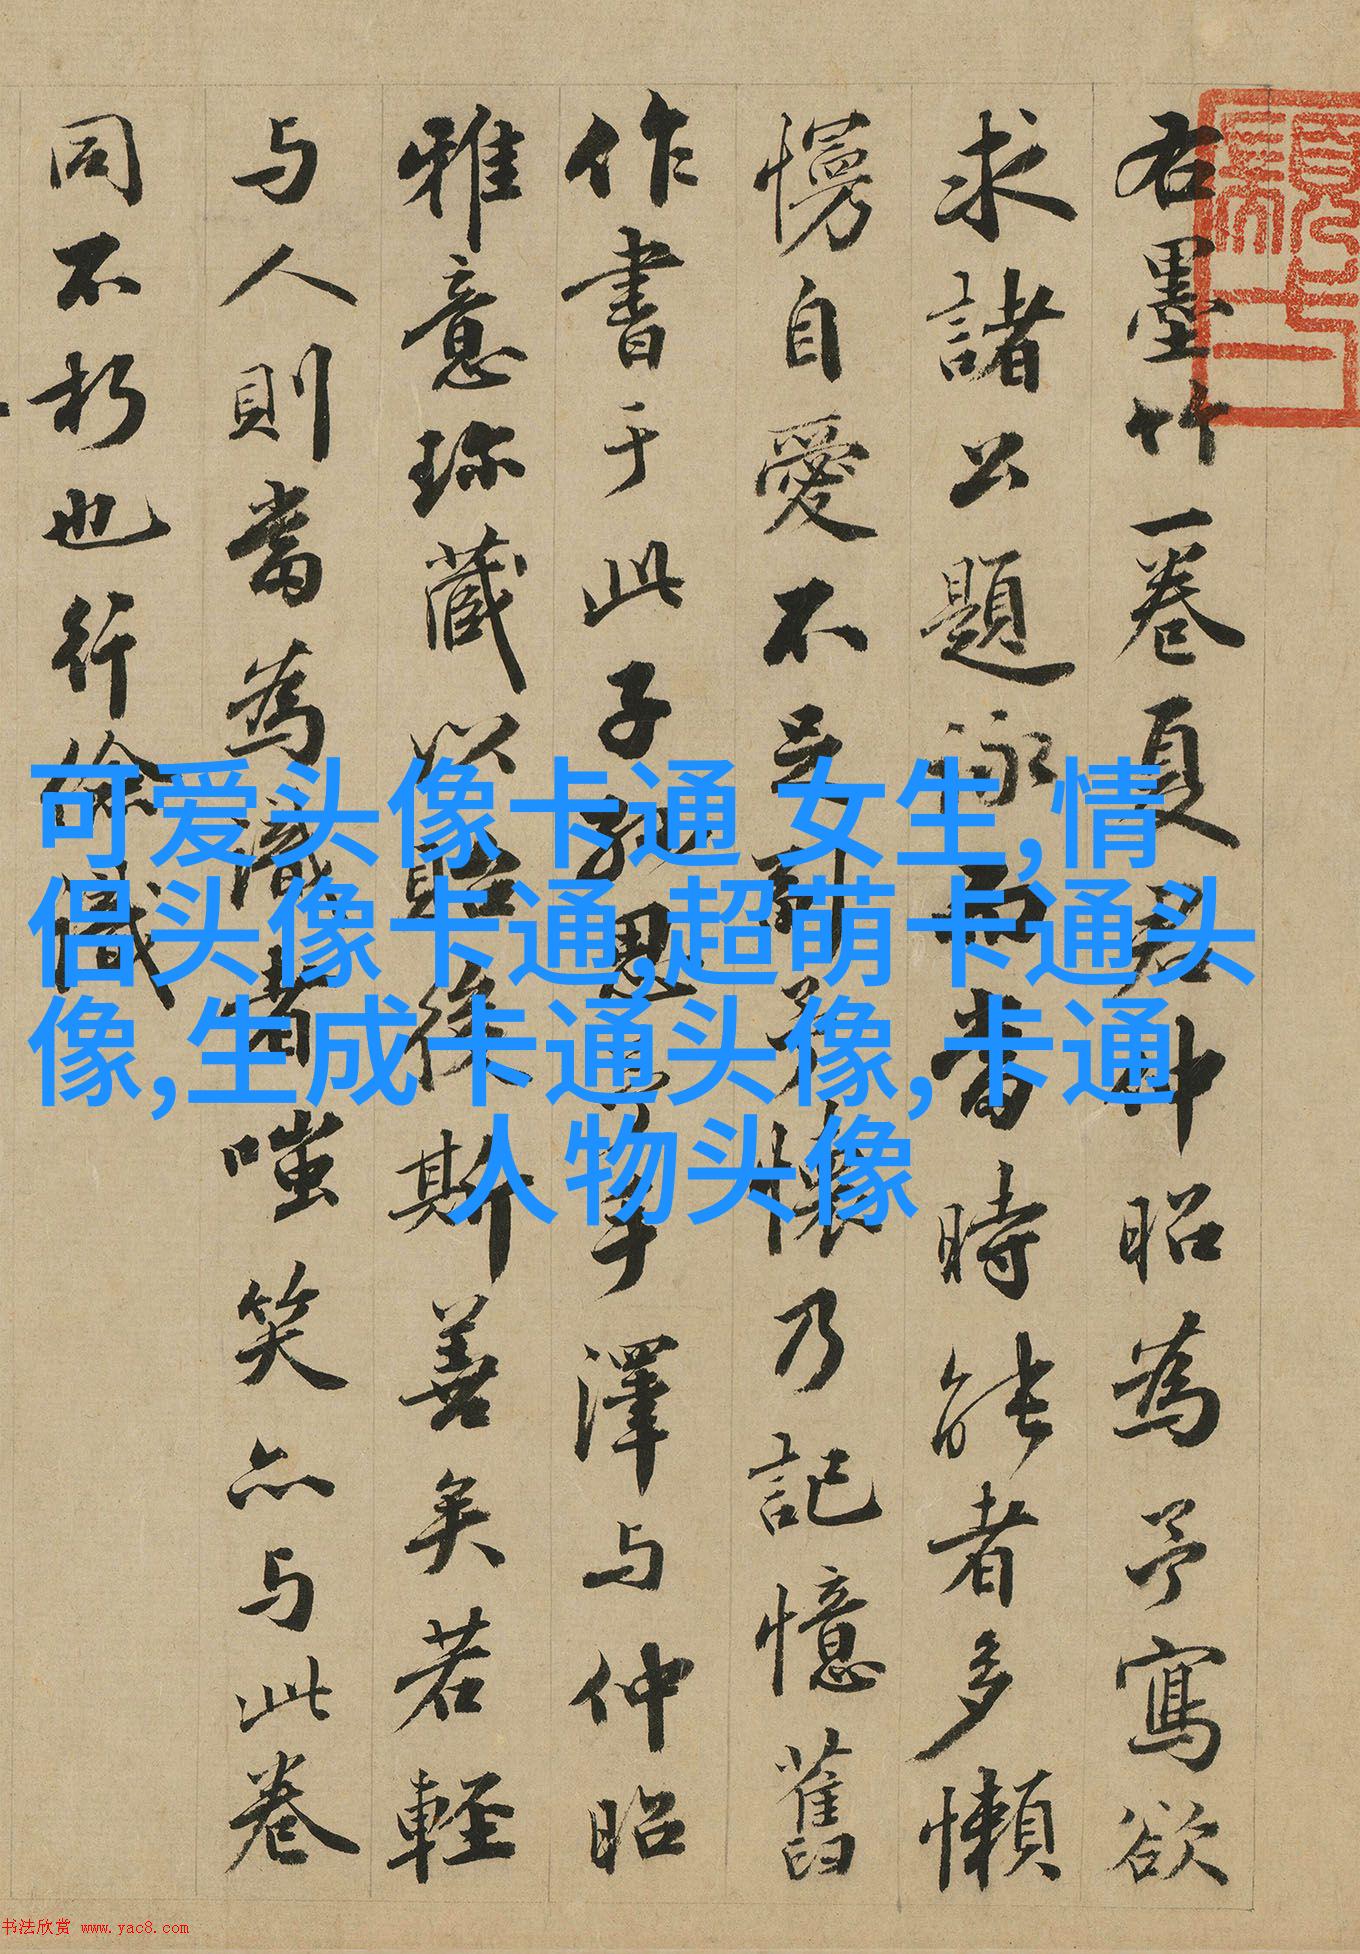 右墨竹一卷夏君仲昭為予寫欲
求諸公題詠而當時能者多懶
慢自愛不足副予懷乃記憶舊
作書于此子孫思吾手澤与仲昭
雅意珎藏以貽後斯善矣若輕
与人則當為識者嗤笑亦与此卷
同不朽也行徐識
可爱头像卡通 女生,情
侣头像卡通,超萌卡通头
像,生成卡通头像,卡通
人物头像
书法欣赏 www.yac8.com